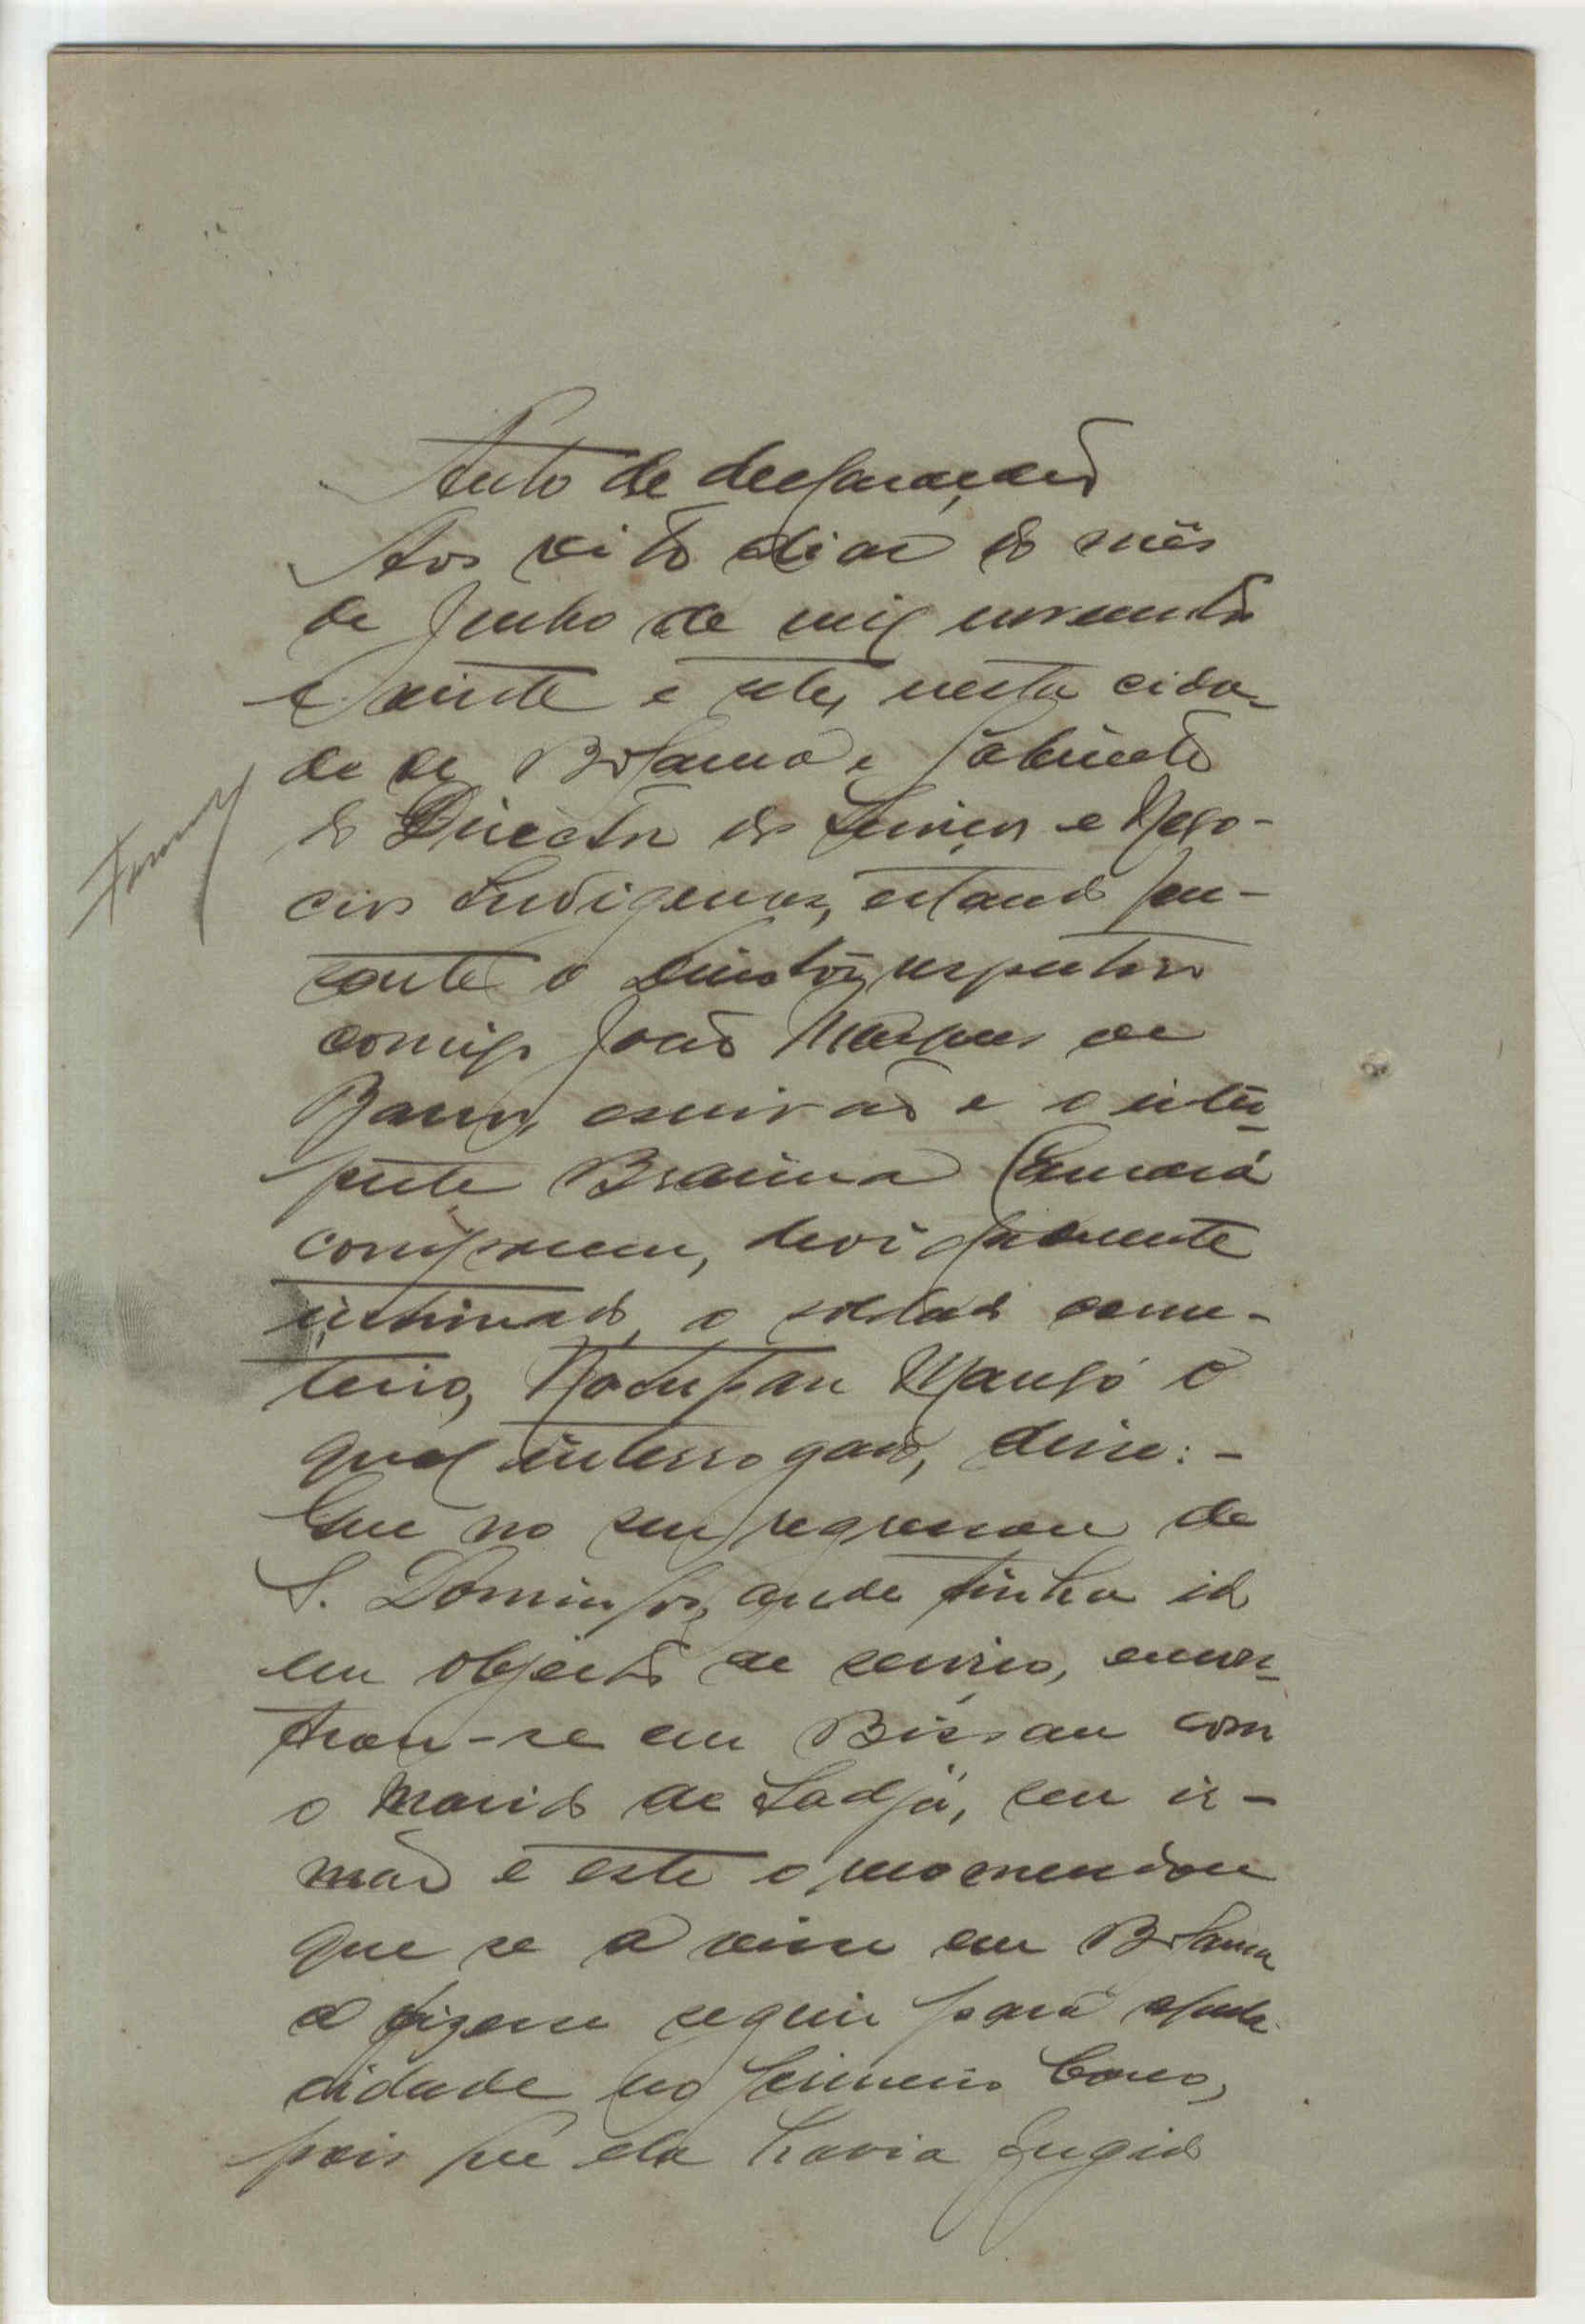 Auto de declaração
Aos oito dias do mês
de Junho de mil novecentos
e vinte e sete, nesta cida-
de de Bolama e Gabinete
do Director dos Serviços e Nego-
cios Indigenas, estando pre-
sente o Director respectivo
comigo João Marques de
Barros, escrivão e o inter-
prete Braima Camará
compareceu, devidamente
intimado, o soldado
o
qual interrogado, disse: -
Que no seu regresso de
S. Domingos, onde tinha ido
em objecto de serviço, encon-
trou-se em Bissau com
o marido de Sadjá, seu ir-
mão e este o recomendou
que se a visse em Bolama
a fizesse seguir para aquela
cidade no primeiro barco,
pois que ela havia fugido